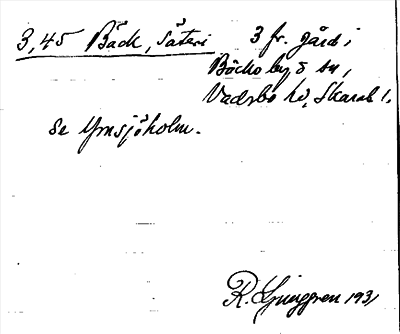 3,45 Bäck, säteri 3 fr. gård i
Bäcks by, o sn,
Vadsbo hd, Skarab l.
Se Ymsjöholm.
R. Ljunggren 1931